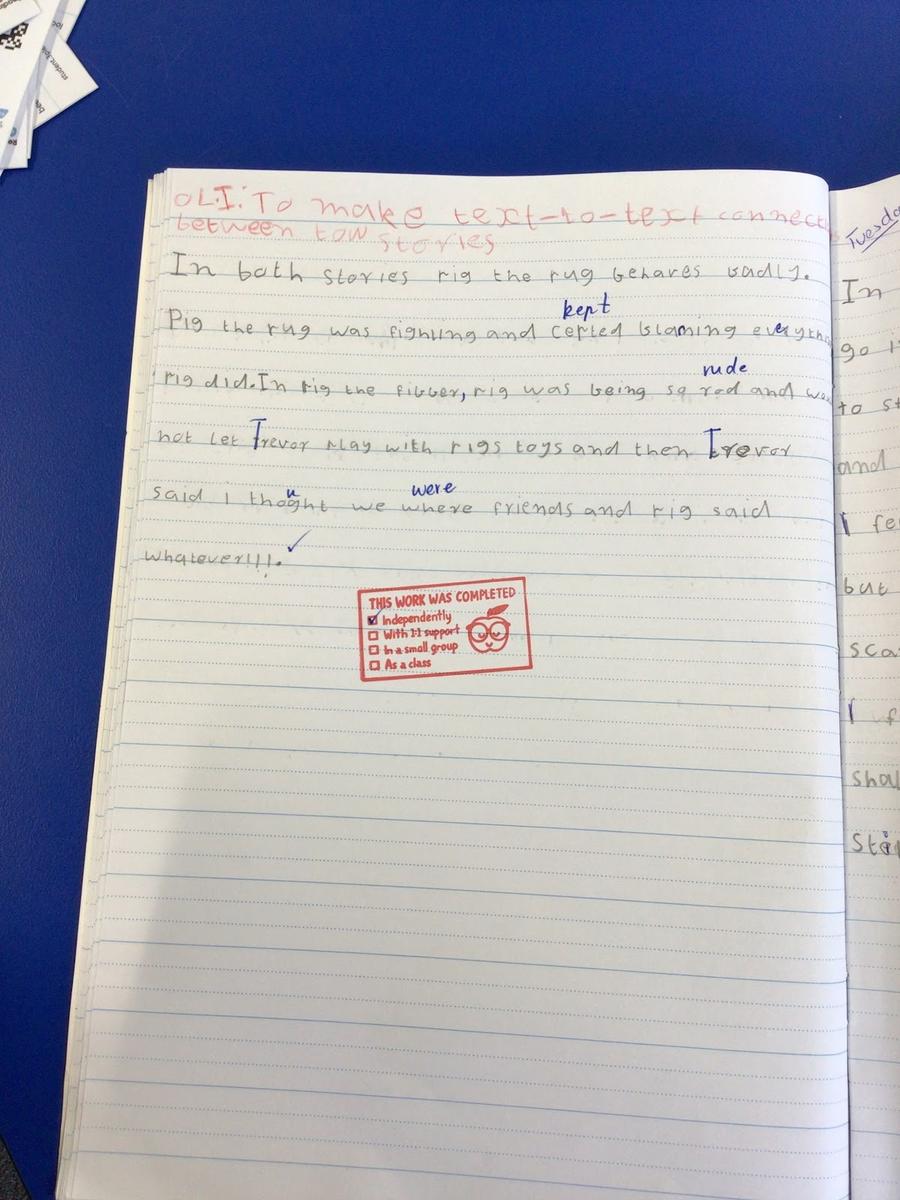 OLI: To make text-to-text connect
between tow stories
In both stories pig the pug behaves badly.
kept
Pig the pug was fighting and cepted blaming everyth
rude
pig did. In pig the fibber, pig was being so rod and wa
not let Trevor play with pigs toys and then Trevor
were
said i thought we where friends and pig said
whatever!!!.
THIS WORK WAS COMPLETED
Independently
With 1:1 support
In a small group
As a class
Tuesda
In
go i
to st
and
I fe
but
sca
I
sha